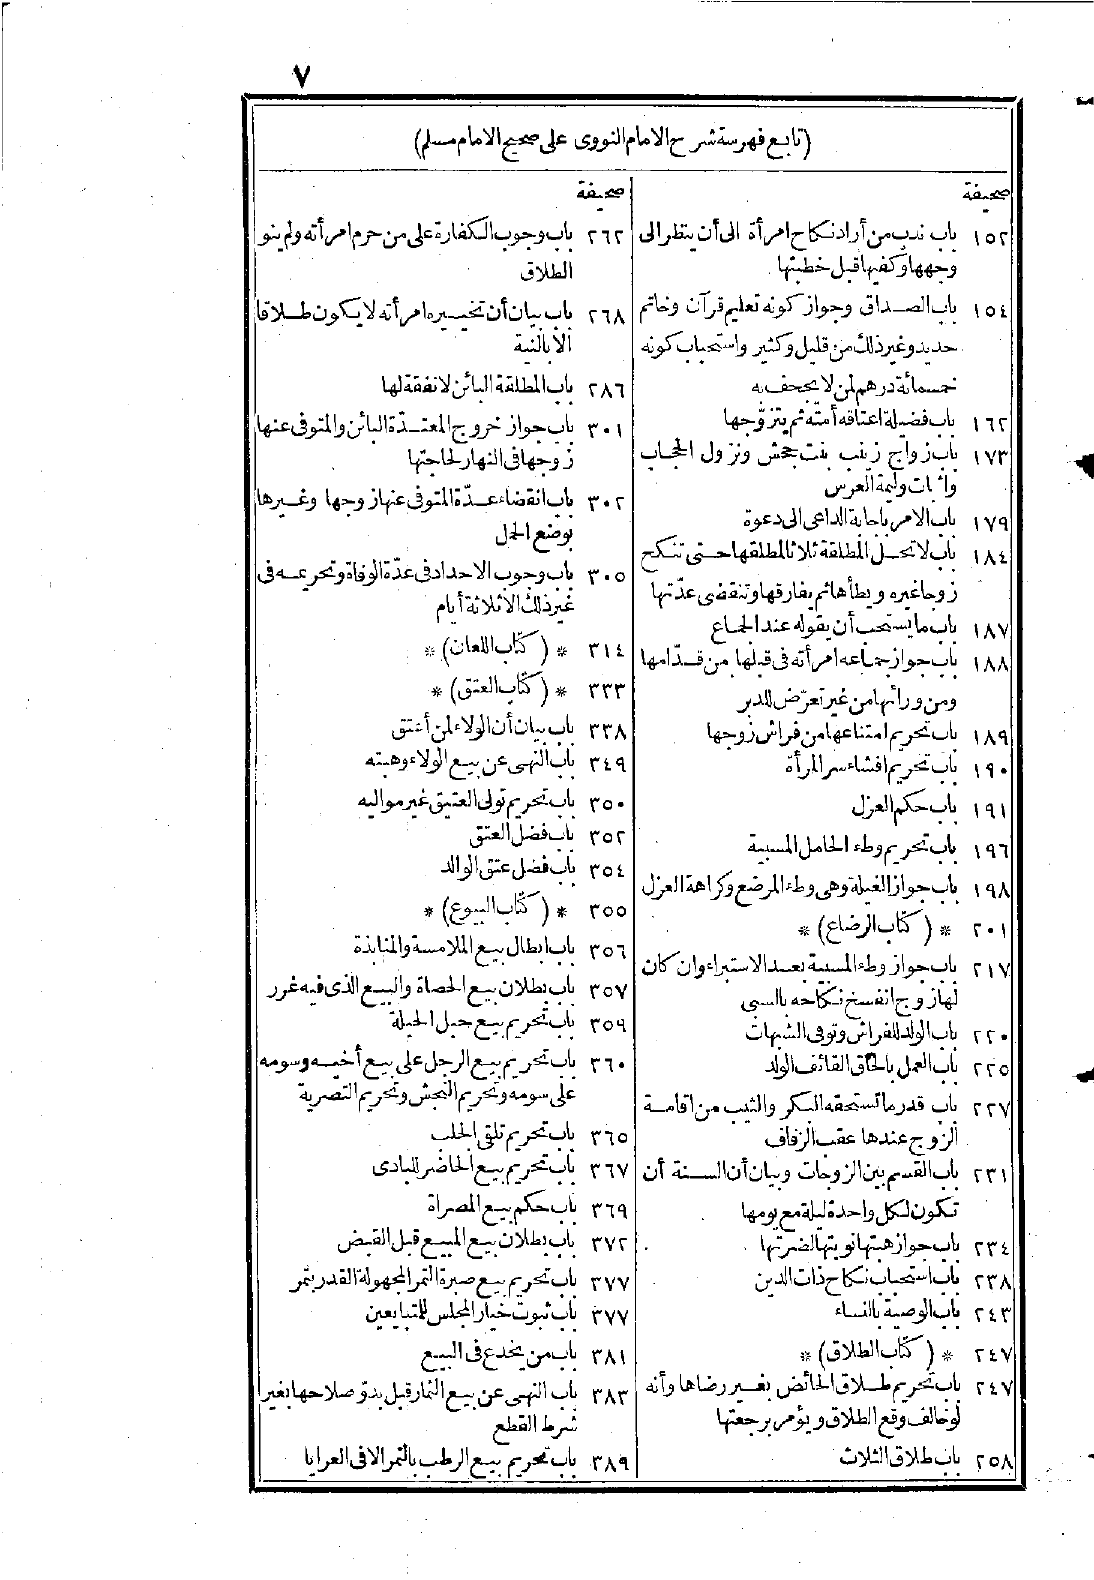 ٧
(تابع فهرسة شرح الامام النووى على صحيح الامام مسلم)
صحيفة
١٥٢ باب ندب من أراد نكاح امرأة الى أن ينظر الى
وجهها وكفيها قبل خطبتها
١٥٤ باب الصداق وجواز كونه تعليم قرآن وخاتم
حديد وغير ذلك من قليل وكثير واستحباب كونه
خمسمائة درهم لمن لا يجحف به
١٦٢ باب فضيلة اعتاقه أمته ثم يتزوّجها
١٧٣ باب زواج زينب بنت جحش ونزول الحجاب
واثبات وليمة العرس
١٧٩ باب الامر باجابة الداعى الى دعوة
١٨٤ باب لا تحل المطلقة ثلاثا لمطلقها حتى تنكح
زوجا غيره ويطأها ثم يفارقها وتنقضى عدّتها
١٨٧ باب ما يستحب أن يقوله عند الجماع
١٨٨ باب جواز جماعه امرأته فى قبلها من قدّامها
ومن ورائها من غير تعرّض للدبر
١٨٩ باب تحريم امتناعها من فراش زوجها
١٩٠ باب تحريم افشاء سر المرأة
١٩١ باب حكم العزل
١٩٦ باب تحريم وطء الحامل المسبية
١٩٨ باب جواز الغيلة وهى وطء المرضع وكراهة العزل
٢٠١ * (كتاب الرضاع) *
٢١٧ باب جواز وطء المسبية بعد الاستبراء وان كان
لها زوج انفسخ نكاحه بالسبى
٢٢٠ باب الولد للفراش وتوقى الشبهات
٢٢٥ باب العمل بالحاق القائف الولد
٢٢٧ باب قدر ما تستحقه البكر والثيب من اقامة
الزوج عندها عقب الزفاف
٢٣١ باب القسم بين الزوجات وبيان أن السنة أن
تكون لكل واحدة ليلة مع يومها
٢٣٤ باب جواز هبتها نوبتها لضرتها
٢٣٨ باب استحباب نكاح ذات الدين
٢٤٣ باب الوصية بالنساء
٢٤٧ * (كتاب الطلاق) *
٢٤٧ باب تحريم طلاق الحائض بغير رضاها وأنه
لو خالف وقع الطلاق ويؤمر برجعتها
٢٥٨ باب طلاق الثلاث
صحيفة
٢٦٢ باب وجوب الكفارة على من حرم امرأته ولم ينو
الطلاق
٢٦٨ باب بيان أن تخييره امرأته لا يكون طلاقا
الا بالنية
٢٨٦ باب المطلقة البائن لا نفقة لها
٣٠١ باب جواز خروج المعتدّة البائن والمتوفى عنها
زوجها فى النهار لحاجتها
٣٠٢ باب انقضاء عدّة المتوفى عنها زوجها وغيرها
بوضع الحمل
٣٠٥ باب وجوب الاحداد فى عدّة الوفاة وتحريمه فى
غير ذلك الا ثلاثة أيام
٣١٤ * (كتاب اللعان) *
٣٣٣ * (كتاب العتق) *
٣٣٨ باب بيان أن الولاء لمن أعتق
٣٤٩ باب النهى عن بيع الولاء وهبته
٣٥٠ باب تحريم تولى العتيق غير مواليه
٣٥٢ باب فضل العتق
٣٥٤ باب فضل عتق الوالد
٣٥٥ * (كتاب البيوع) *
٣٥٦ باب ابطال بيع الملامسة والمنابذة
٣٥٧ باب بطلان بيع الحصاة والبيع الذى فيه غرر
٣٥٩ باب تحريم بيع حبل الحبلة
٣٦٠ باب تحريم بيع الرجل على بيع أخيه وسومه
على سومه وتحريم النجش وتحريم التصرية
٣٦٥ باب تحريم تلقى الجلب
٣٦٧ باب تحريم بيع الحاضر للبادى
٣٦٩ باب حكم بيع المصراة
٣٧٢ باب بطلان بيع المبيع قبل القبض
٣٧٧ باب تحريم بيع صبرة التمر المجهولة القدر بتمر
٣٧٧ باب ثبوت خيار المجلس للمتبايعين
٣٨١ باب من يخدع فى البيع
٣٨٣ باب النهى عن بيع الثمار قبل بدوّ صلاحها بغير
شرط القطع
٣٨٩ باب تحريم بيع الرطب بالتمر الا فى العرايا